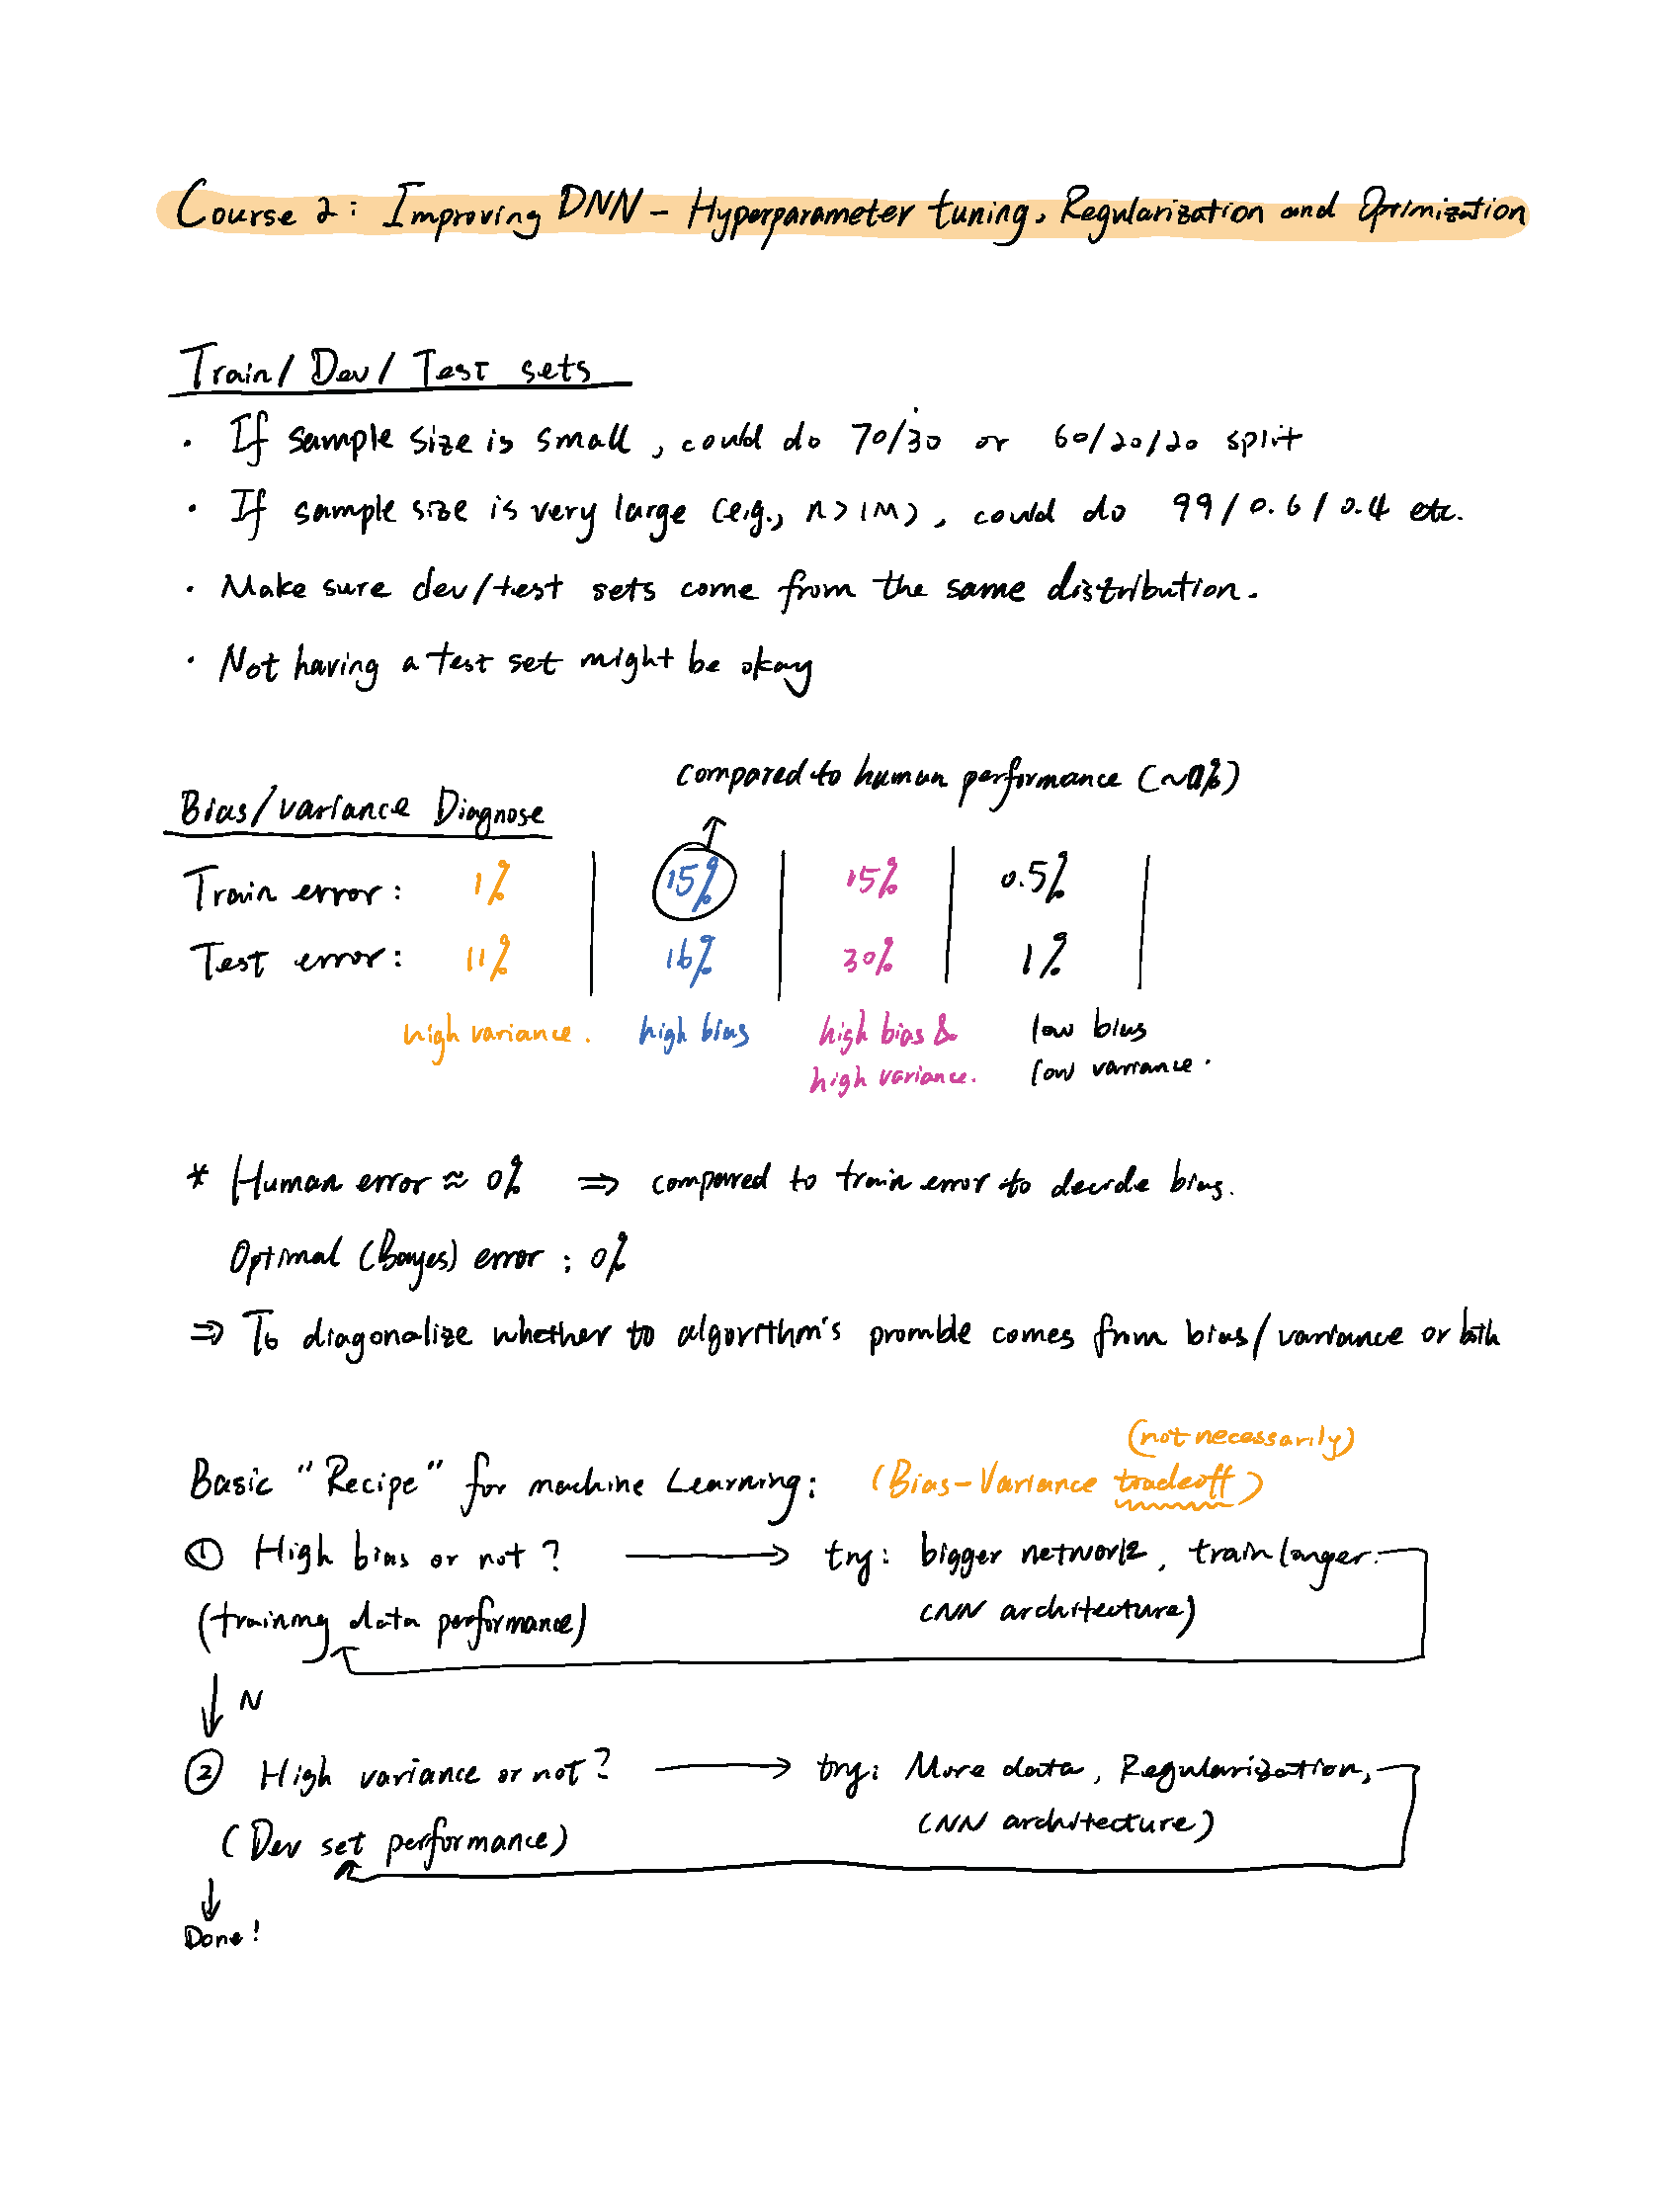 Course 2: Improving DNN - Hyperparameter tuning, Regularization and Optimization
Train/Dev/Test sets
· If sample size is small, could do 70/30 or 60/20/20 split
· If sample size is very large (e.g., n>1M), could do 99/0.6/0.4 etc.
· Make sure dev/test sets come from the same distribution.
· Not having a test set might be okay
compared to human performance (~0%)
Bias/variance Diagnose
Train error: 1% | 15% | 15% | 0.5% |
Test error: 11% | 16% | 30% | 1% |
high variance. high bias high bias & low bias
high variance. low variance.
* Human error ≈ 0% ⇒ compared to train error to decide bias.
Optimal (Bayes) error : 0%
⇒ To diagonalize whether to algorithm's promble comes from bias/variance or both
(not necessarily)
Basic "Recipe" for machine Learning: (Bias-Variance tradeoff)
① High bias or not? → try: bigger network, train longer.
(training data performance) (NN architecture)
↓ N
② High variance or not? → try: More data, Regularization,
(Dev set performance) (NN architecture)
↓
Done!